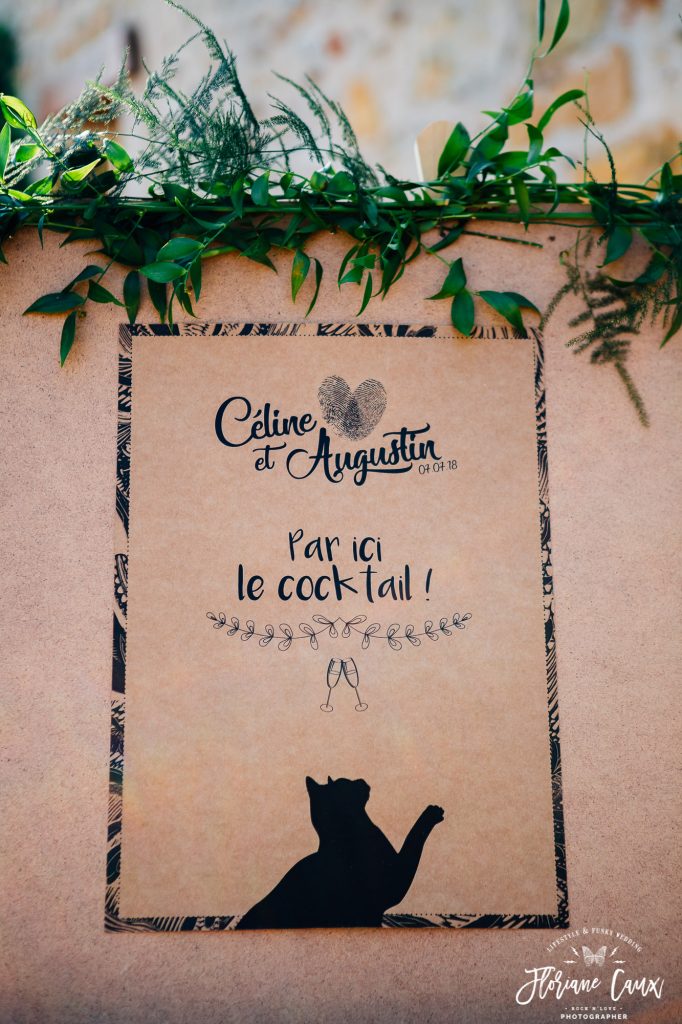 Céline
et Augustin
07.07.18
Par ici
le cocktail !
LIFESTYLE & FUNKY WEDDING
Floriane Caux
ROCK'N'LOVE
PHOTOGRAPHER